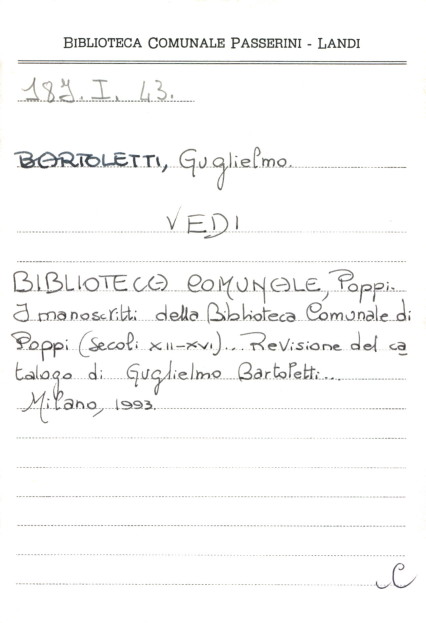 BIBLIOTECA COMUNALE PASSERINI - LANDI
187. I. 43.
BARTOLETTI, Guglielmo.
VEDI
BIBLIOTECA COMUNALE, Poppi.
I manoscritti della Biblioteca Comunale di
Poppi (secoli XII-XVI)... Revisione del ca
talogo di Guglielmo Bartoletti...
Milano, 1993.
C